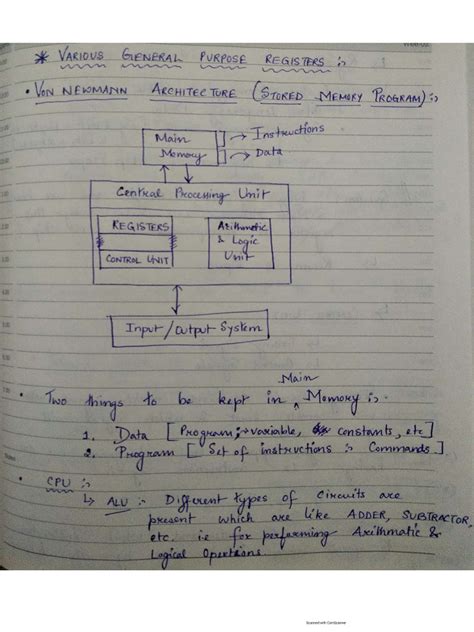 * VARIOUS GENERAL PURPOSE REGISTERS :-
• VON NEWMANN ARCHITECTURE (STORED MEMORY PROGRAM) :-
Main Memory
→ Instructions
→ Data
Central Processing Unit
REGISTERS
CONTROL UNIT
Arithmetic & Logic Unit
Input/Output System
• Two things to be kept in Main Memory :-
1. Data [Program :→ variable, constants, etc]
2. Program [Set of instructions :- Commands]
• CPU :-
↳ ALU :- Different types of circuits are
present which are like ADDER, SUBTRACTOR,
etc. i.e for performing Arithmatic &
Logical Opertions
Scanned with CamScanner